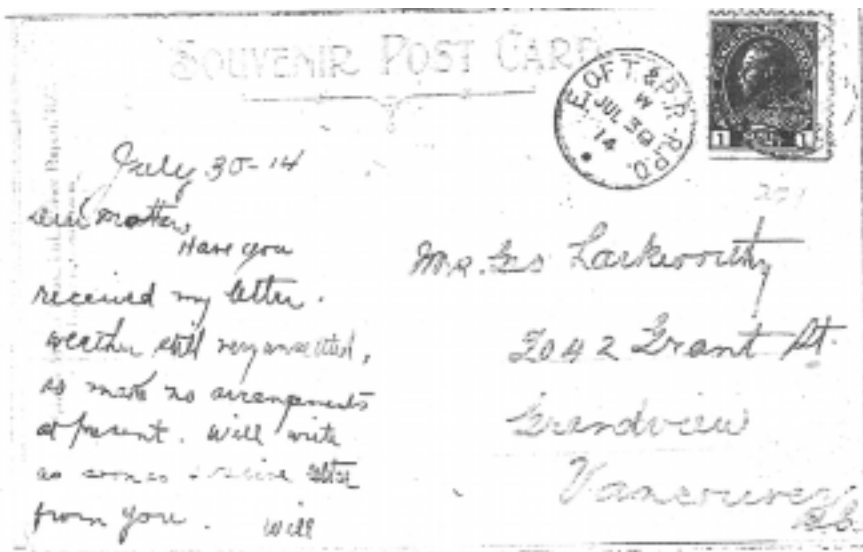 SOUVENIR POST CARD
E. OF T. & P.R. R.P.O.
W
JUL 30
14
1 1
July 30-14
Dear Mother,
Have you
received my letter.
weather still very unsettled,
so make no arrangements
at present. Will write
as soon as receive letter
from you. Will
Mr. Geo Larkworthy
2042 Grant St.
Grandview
Vancouver
B.C.